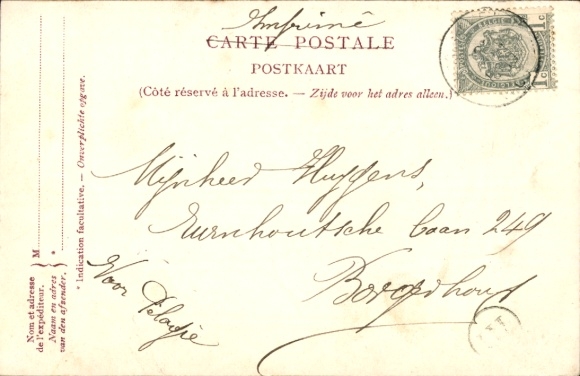 Imprimé
CARTE POSTALE
POSTKAART
(Côté réservé à l'adresse. — Zijde voor het adres alleen.)
Mijnheer Huygens,
Turnhoutsche baan 249
Borgerhout
Voor Pelagie
* Indication facultative. — Onverplichte opgave.
M
*
Nom et adresse
de l'expéditeur.
Naam en adres
van den afzender.
1c
1c
BELGIE